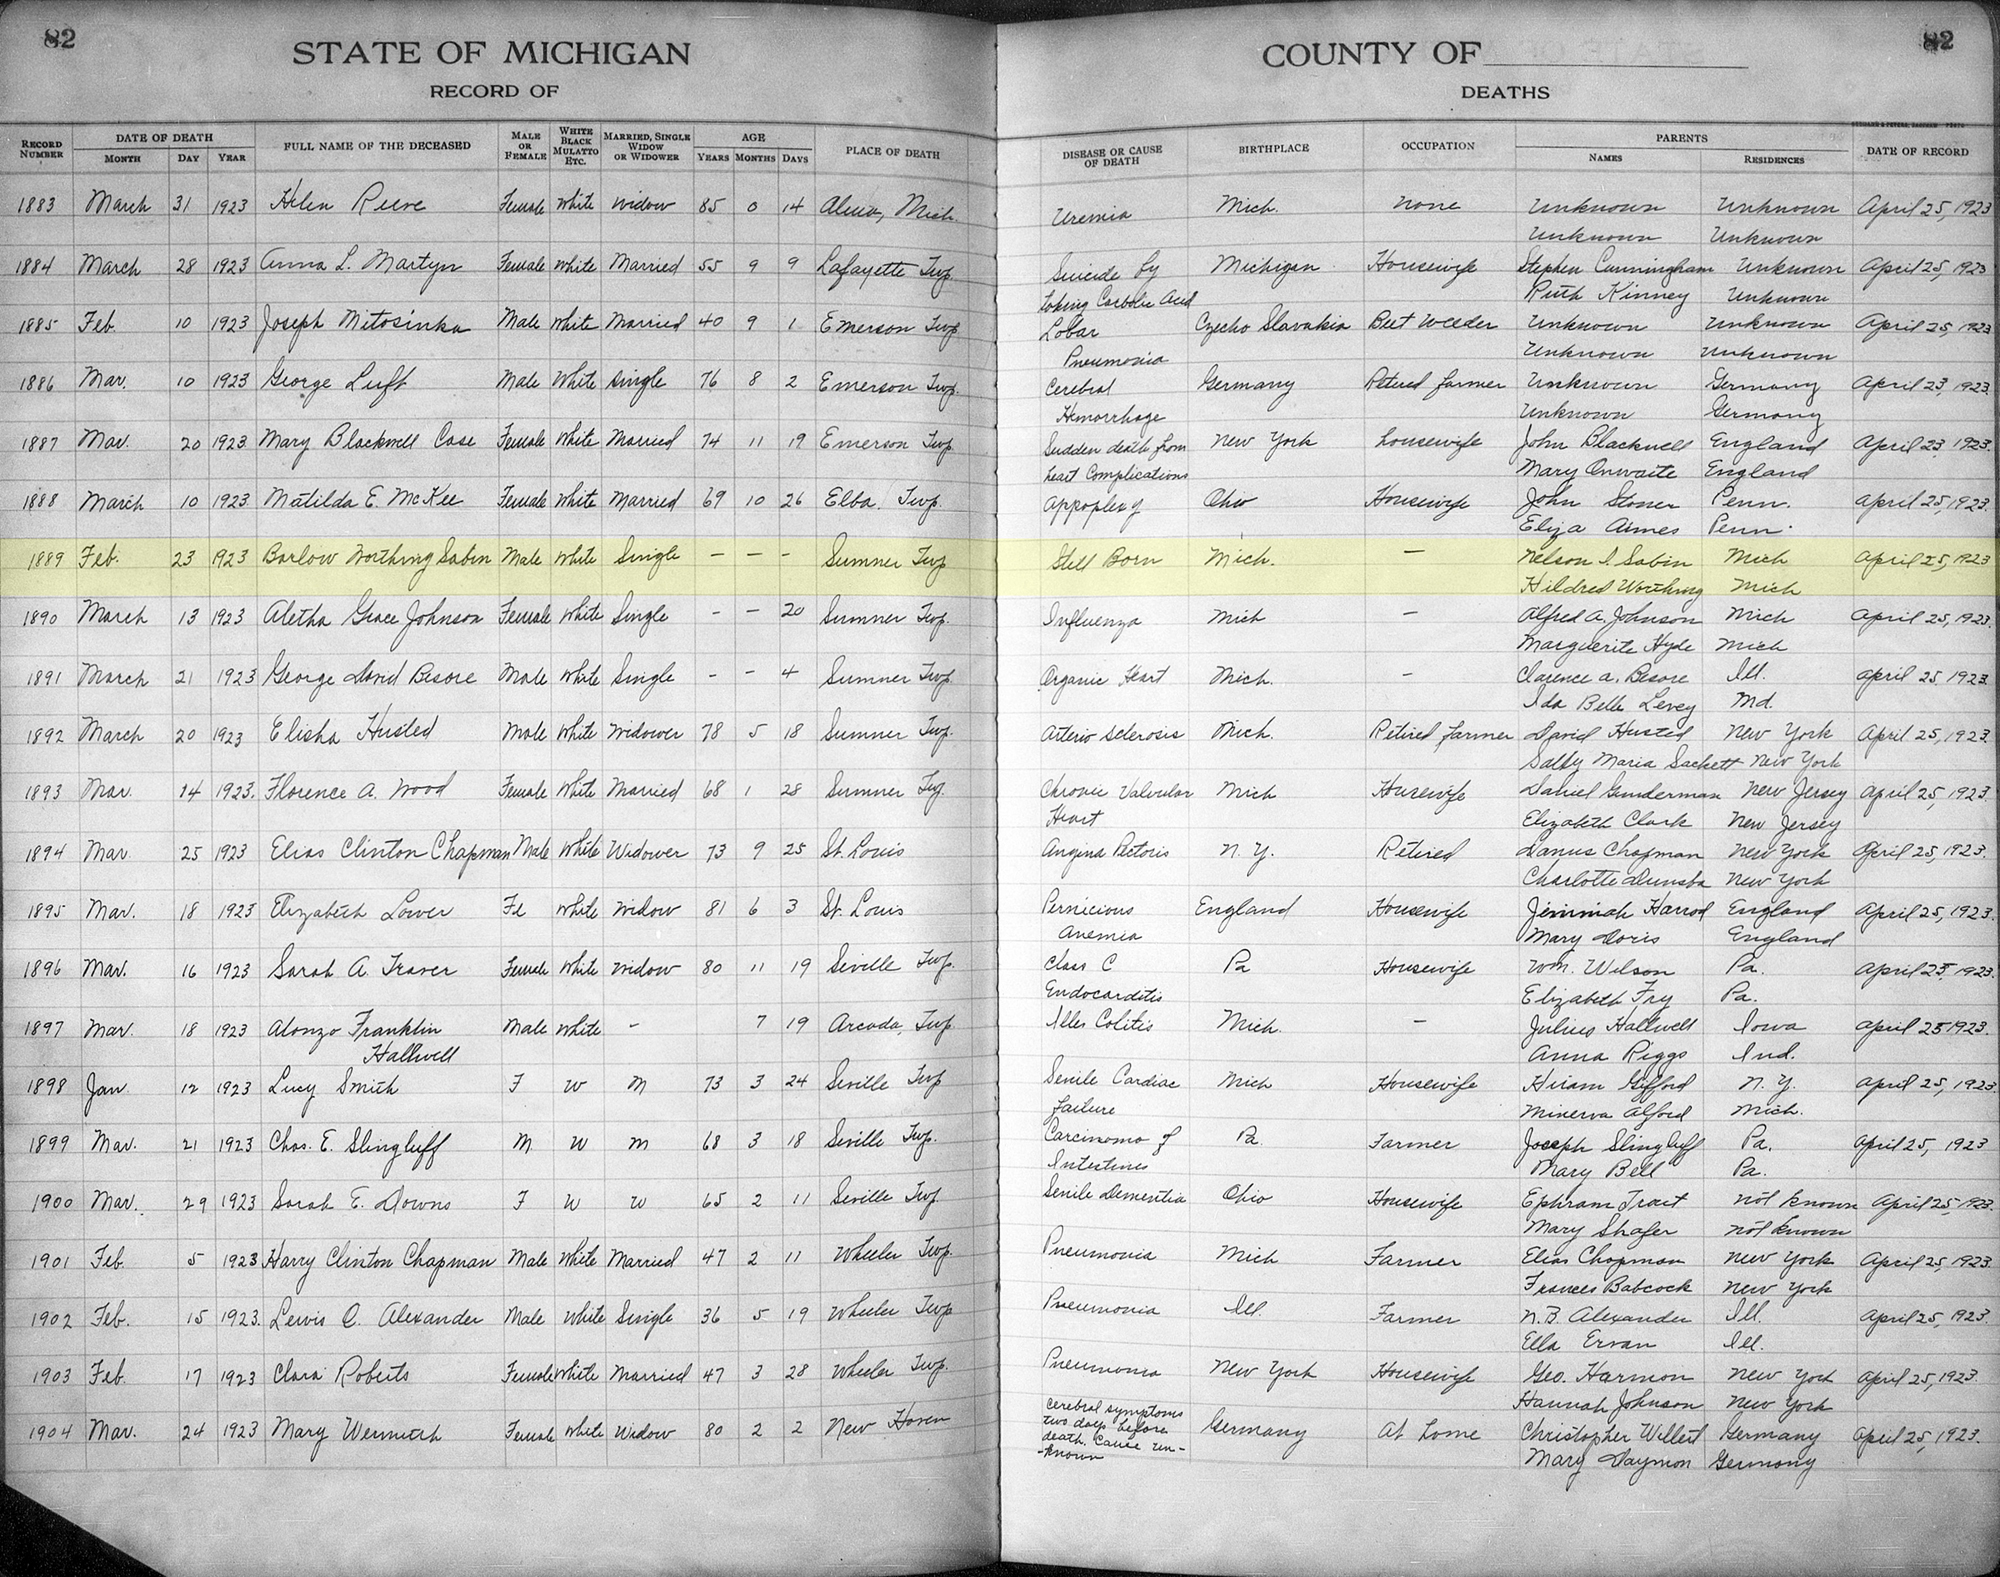 82
STATE OF MICHIGAN
RECORD OF
82
COUNTY OF
DEATHS
RECORD NUMBER DATE OF DEATH MONTH DAY YEAR FULL NAME OF THE DECEASED MALE OR FEMALE WHITE BLACK MULATTO ETC. MARRIED, SINGLE WIDOW OR WIDOWER AGE YEARS MONTHS DAYS PLACE OF DEATH DISEASE OR CAUSE OF DEATH BIRTHPLACE OCCUPATION PARENTS NAMES RESIDENCES DATE OF RECORD
1883 March 31 1923 Helen Reeve Female White Widow 85 0 14 Alma, Mich. Uremia Mich. None Unknown Unknown April 25, 1923
Unknown Unknown
1884 March 28 1923 Anna L. Martyn Female White Married 55 9 9 Lafayette Twp. Suicide by Michigan Housewife Stephen Cunningham Unknown April 25, 1923
taking Carbolic Acid Ruth Kinney Unknown
1885 Feb. 10 1923 Joseph Mitosinka Male White Married 40 9 1 Emerson Twp. Lobar Czecho Slavakia Beet Weeder Unknown Unknown April 25, 1923
Pneumonia Unknown Unknown
1886 Mar. 10 1923 George Luft Male White Single 76 8 2 Emerson Twp. Cerebral Germany Retired farmer Unknown Germany April 23, 1923.
Hemorrhage Unknown Germany
1887 Mar. 20 1923 Mary Blackwell Case Female White Married 74 11 19 Emerson Twp. Sudden death from New York housewife John Blackwell England April 23 1923.
heart Complications Mary Onwaite England
1888 March 10 1923 Matilda E. McKee Female White Married 69 10 26 Elba Twp. Appoplexy Ohio Housewife John Stoner Penn. April 25, 1923.
Eliza Aimes Penn.
1889 Feb. 23 1923 Barlow Worthing Sabin Male White Single – – – Sumner Twp Still Born Mich. – Nelson I. Sabin Mich April 25, 1923
Hildred Worthing Mich
1890 March 13 1923 Aletha Grace Johnson Female White Single – – 20 Sumner Twp. Influenza Mich – Alfred A. Johnson Mich April 25, 1923.
Marguerite Hyde Mich
1891 March 21 1923 George David Besore Male White Single – – 4 Sumner Twp. Organic Heart Mich. – Clarence A. Besore Ill. April 25, 1923.
Ida Belle Levey Md.
1892 March 20 1923 Elisha Husted Male White Widower 78 5 18 Sumner Twp. Arterio Sclerosis Mich. Retired farmer David Husted New York April 25, 1923.
Sally Maria Sackett New York
1893 Mar. 14 1923. Florence A. Wood Female White Married 68 1 28 Sumner Twp. Chronic Valvular Mich Housewife Daniel Gunderman New Jersey April 25, 1923.
Heart Elizabeth Clark New Jersey
1894 Mar 25 1923 Elias Clinton Chapman Male White Widower 73 9 25 St. Louis Angina Pectoris N. Y. Retired Darius Chapman New York April 25, 1923.
Charlotte Dunsba New York
1895 Mar. 18 1923 Elizabeth Lower Fe White Widow 81 6 3 St. Louis Pernicious England Housewife Jimmiah Harrod England April 25, 1923.
Anemia Mary Doris England
1896 Mar. 16 1923 Sarah A. Traver Female White Widow 80 11 19 Seville Twp. Class C Pa Housewife Wm. Wilson Pa. April 25, 1923.
Endocarditis Elizabeth Fry Pa.
1897 Mar. 18 1923 Alonzo Franklin Male White – 7 19 Arcada, Twp. Illeo Colitis Mich. – Julius Hallwell Iowa April 25 1923.
Hallwell Anna Riggs Ind.
1898 Jan. 12 1923 Lucy Smith F W M 73 3 24 Seville Twp Senile Cardiac Mich Housewife Hiram Gifford N. Y. April 25, 1923.
failure Minerva Alford Mich.
1899 Mar. 21 1923 Chas. E. Slingluff M. W M 68 3 18 Seville Twp. Carcinoma of Pa. Farmer Joseph Slingluff Pa. April 25, 1923
Intestines Mary Bell Pa.
1900 Mar. 29 1923 Sarah E. Downs F W W 65 2 11 Seville Twp. Senile Dementia Ohio Housewife Ephram Trait not known April 25, 1923.
Mary Shafer not known
1901 Feb. 5 1923 Harry Clinton Chapman Male White Married 47 2 11 Wheeler Twp. Pneumonia Mich Farmer Elias Chapman New York April 25, 1923.
Frances Babcock New York
1902 Feb. 15 1923. Lewis C. Alexander Male White Single 36 5 19 Wheeler Twp Pneumonia Ill. Farmer N. B. Alexander Ill. April 25, 1923.
Ella Ervan Ill.
1903 Feb. 17 1923 Clara Roberts Female White Married 47 3 28 Wheeler Twp. Pneumonia New York Housewife Geo. Harmon New York April 25, 1923.
Hannah Johnson New York
1904 Mar. 24 1923 Mary Wermuth Female White Widow 80 2 2 New Haven Cerebral symptoms two days before death. Cause un- Germany At home Christopher Willert Germany April 25, 1923.
-known Mary Daymon Germany